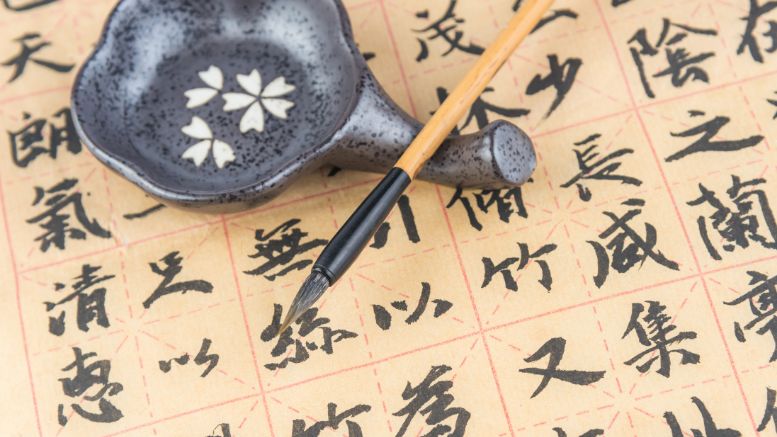 在
陰之蘭亭
少長咸集此
茂林脩竹又
引以為
無絲竹
足以
天朗氣清惠